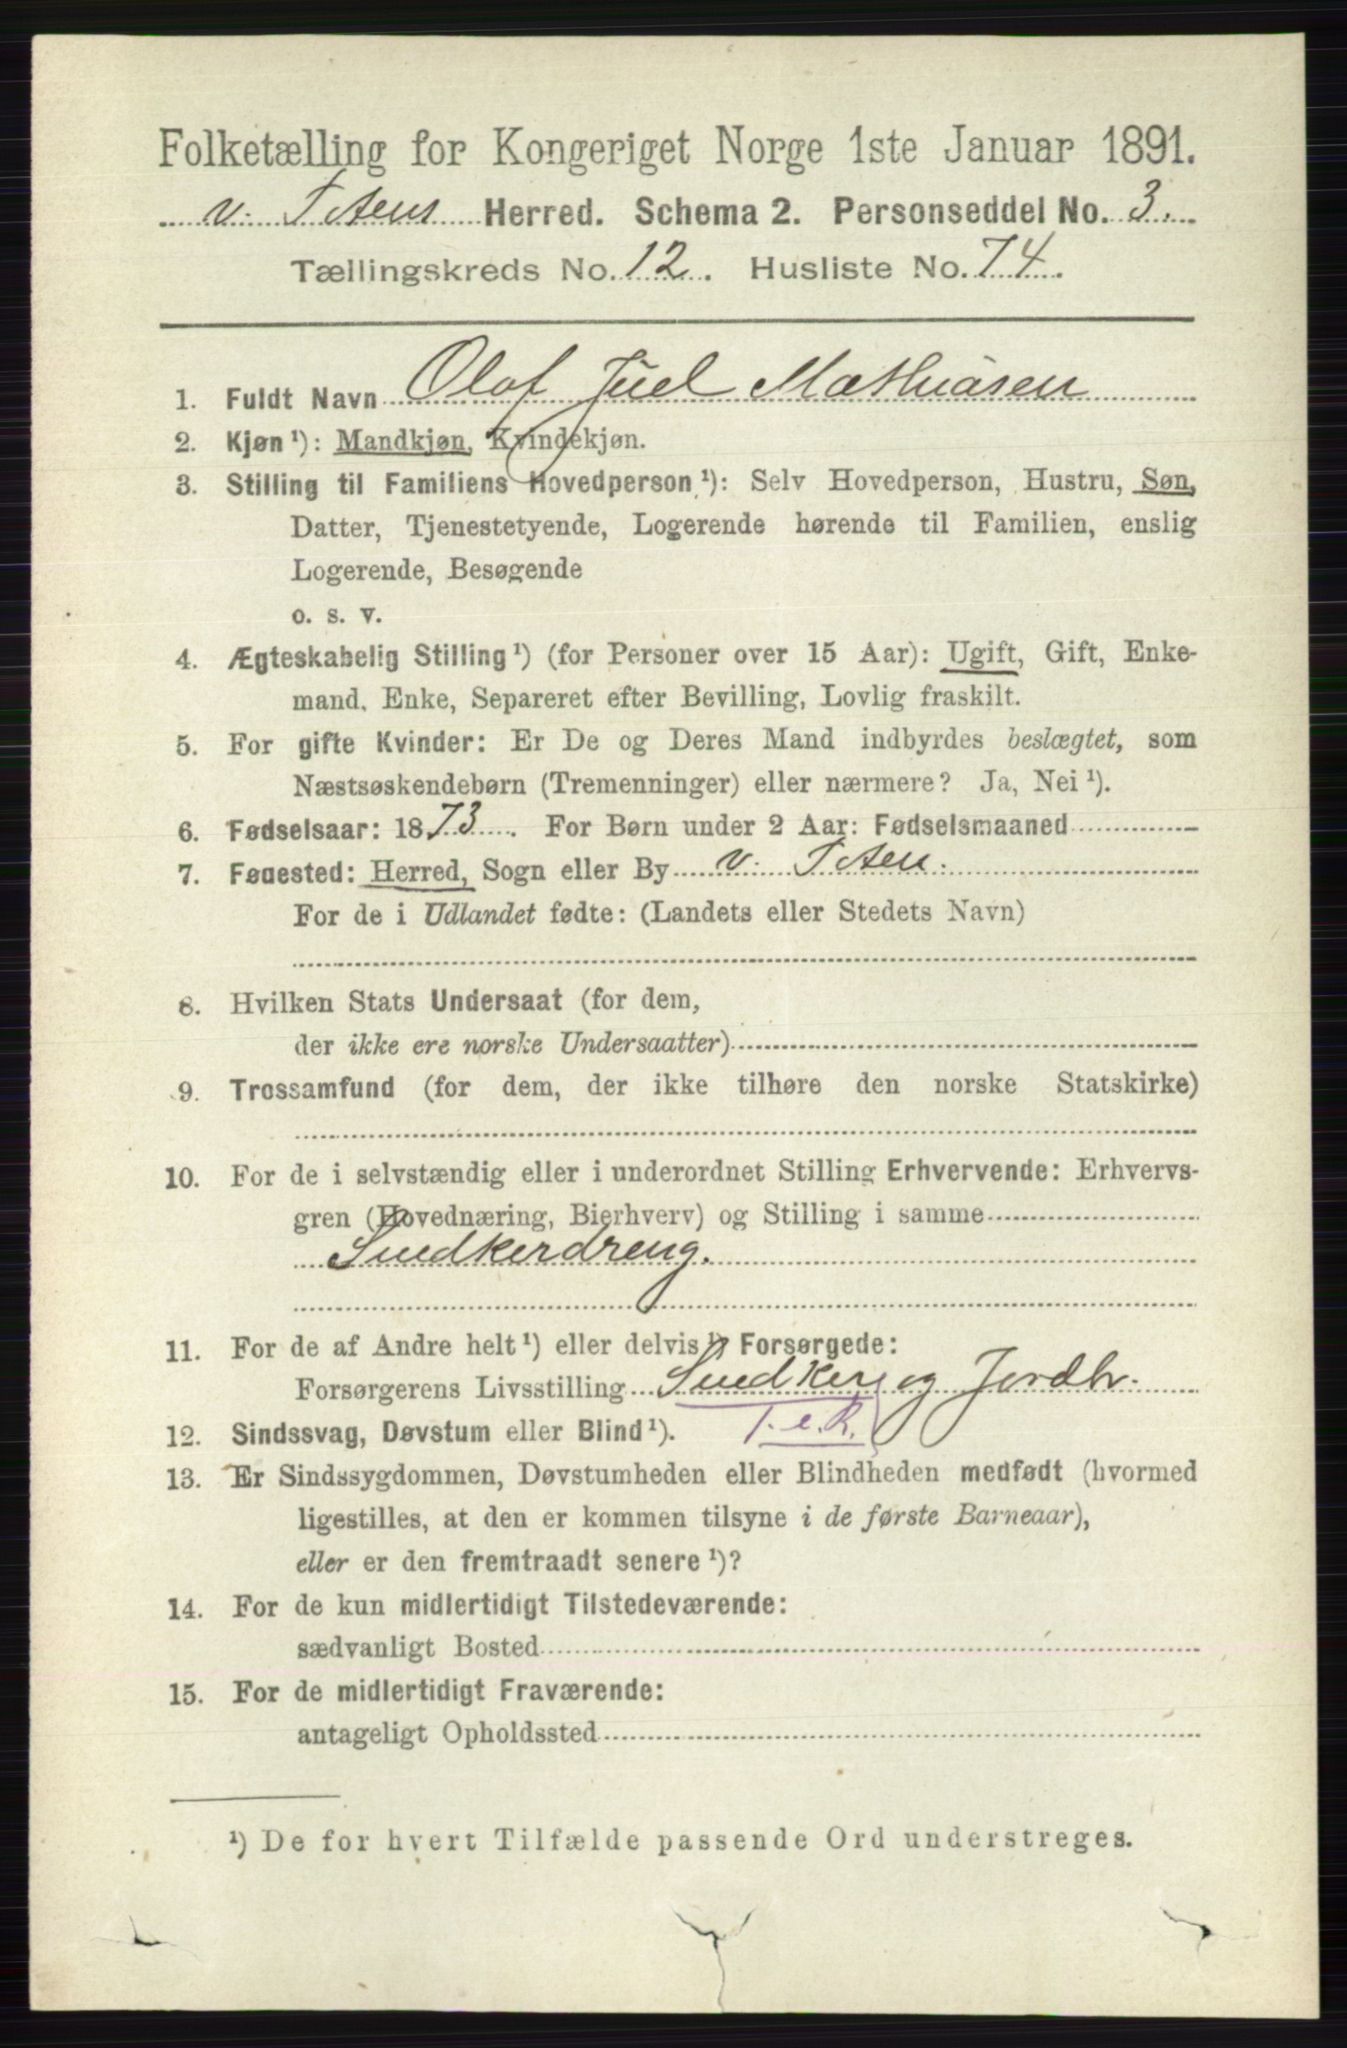 Folketælling for Kongeriget Norge 1ste Januar 1891.
v. Totens Herred. Schema 2. Personseddel No. 3.
Tællingskreds No. 12. Husliste No. 74.
1. Fuldt Navn Olof Juel Mathiasen
2. Kjøn¹): Mandkjøn, Kvindekjøn.
3. Stilling til Familiens Hovedperson¹): Selv Hovedperson, Hustru, Søn,
Datter, Tjenestetyende, Logerende hørende til Familien, enslig
Logerende, Besøgende
o. s. v.
4. Ægteskabelig Stilling¹) (for Personer over 15 Aar): Ugift, Gift, Enke-
mand, Enke, Separeret efter Bevilling, Lovlig fraskilt.
5. For gifte Kvinder: Er De og Deres Mand indbyrdes beslægtet, som
Næstsøskendebørn (Tremenninger) eller nærmere? Ja, Nei¹).
6. Fødselsaar: 1873. For Børn under 2 Aar: Fødselsmaaned
7. Fødested: Herred, Sogn eller By v. Toten.
For de i Udlandet fødte: (Landets eller Stedets Navn)
8. Hvilken Stats Undersaat (for dem,
der ikke ere norske Undersaatter)
9. Trossamfund (for dem, der ikke tilhøre den norske Statskirke)
10. For de i selvstændig eller i underordnet Stilling Erhvervende: Erhvervs-
gren (Hovednæring, Bierhverv) og Stilling i samme
Snedkerdreng.
11. For de af Andre helt¹) eller delvis¹) Forsørgede:
Forsørgerens Livsstilling Snedker og Jordbr.
12. Sindssvag, Døvstum eller Blind¹). T. e. R.
13. Er Sindssygdommen, Døvstumheden eller Blindheden medfødt (hvormed
ligestilles, at den er kommen tilsyne i de første Barneaar),
eller er den fremtraadt senere¹)?
14. For de kun midlertidigt Tilstedeværende:
sædvanligt Bosted
15. For de midlertidigt Fraværende:
antageligt Opholdssted
¹) De for hvert Tilfælde passende Ord understreges.